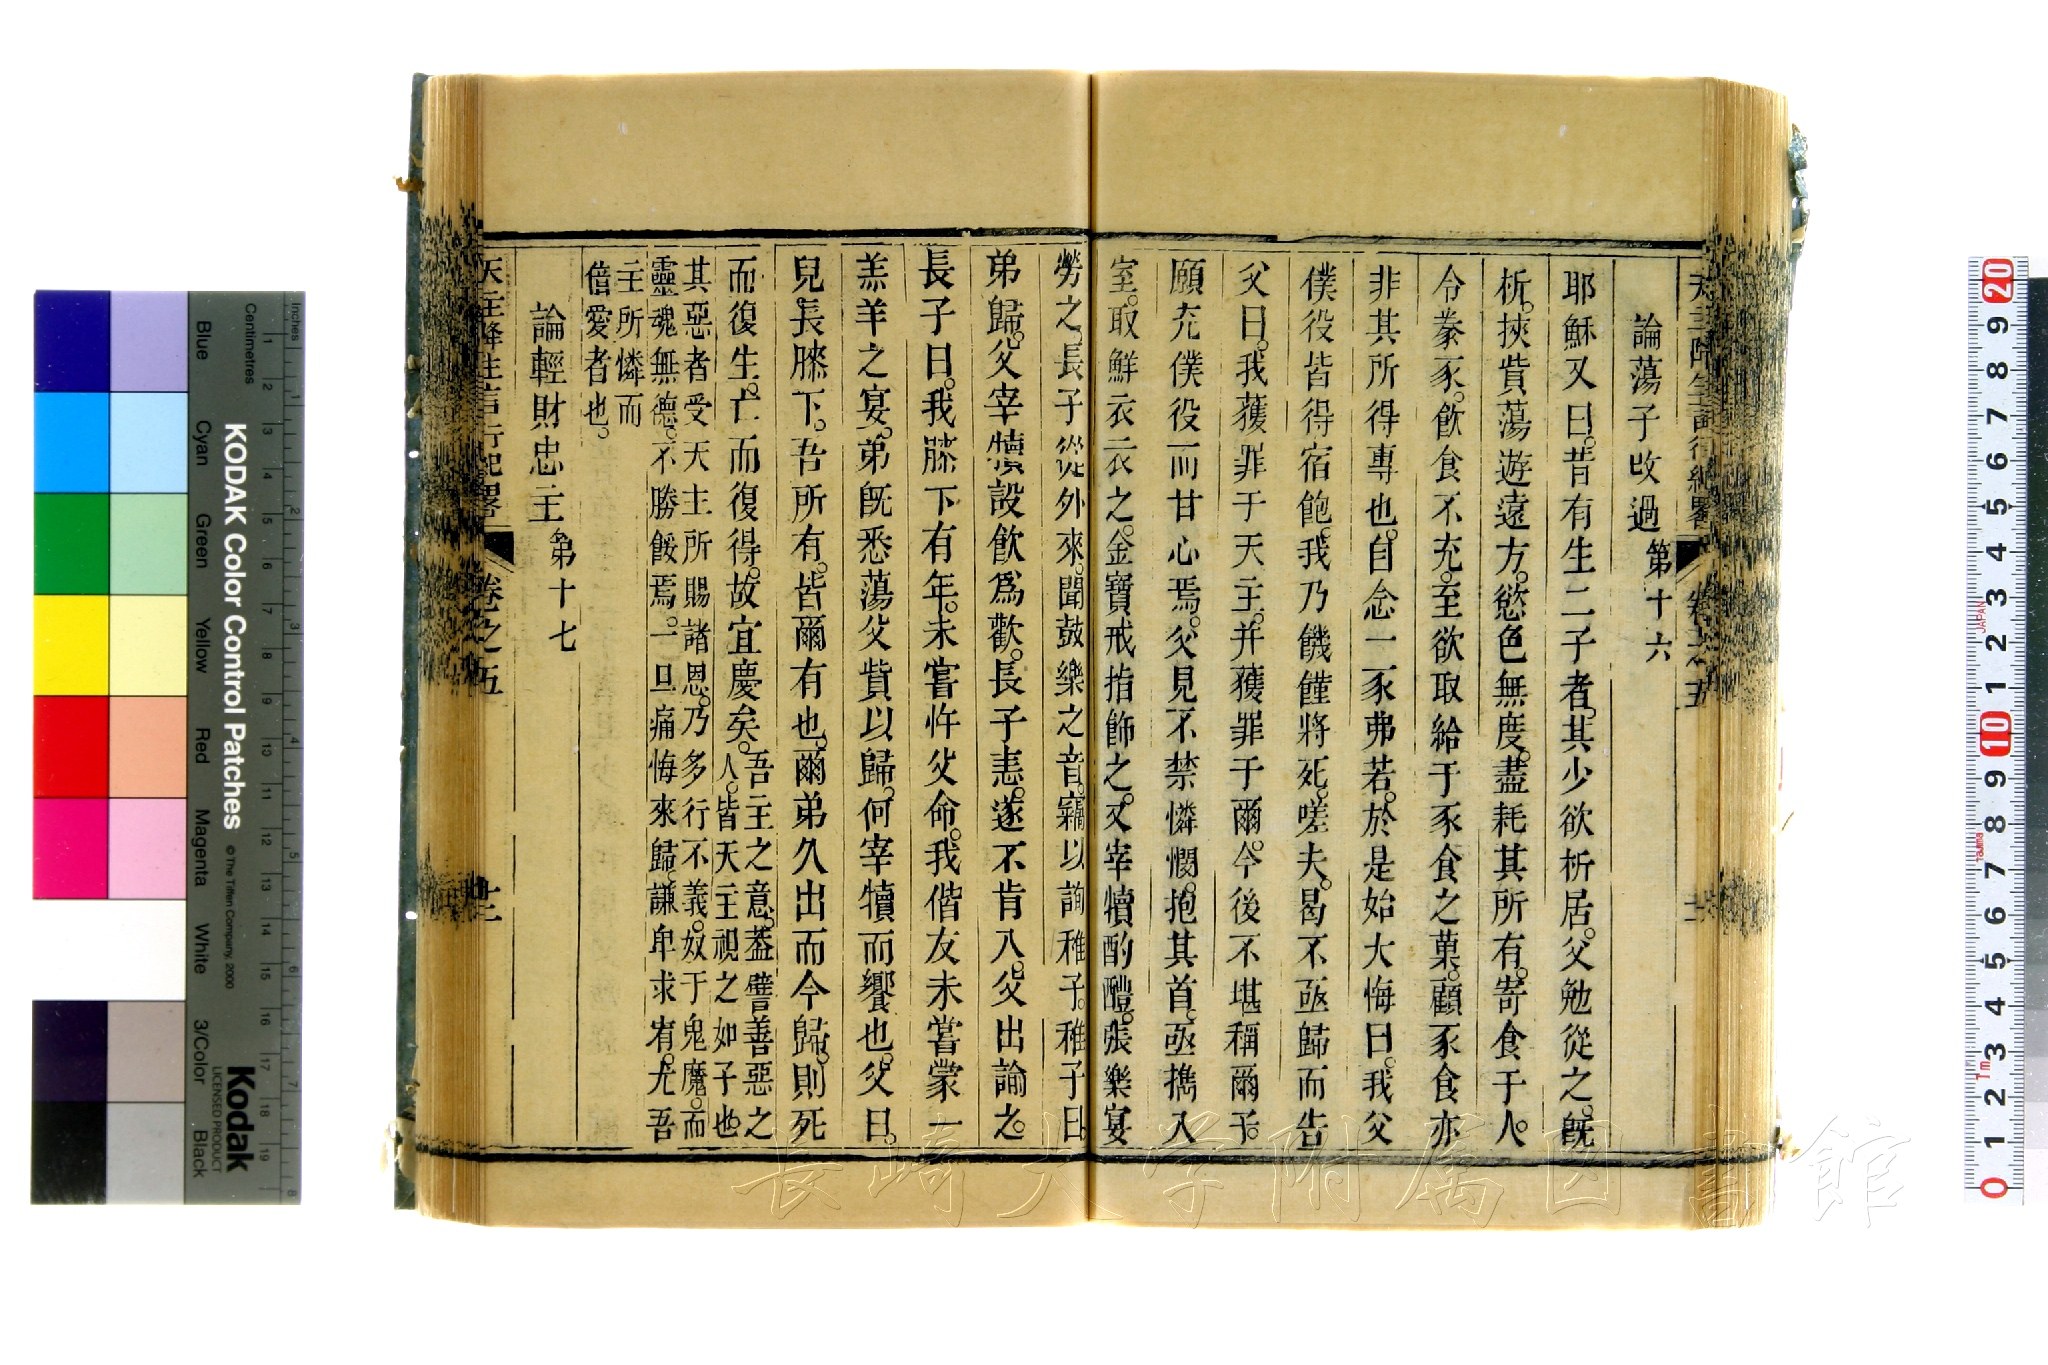 論蕩子改過第十六
耶穌又曰。昔有生二子者。其少欲析居。父勉從之。旣
析。挾貲蕩遊遠方。慾色無度。盡耗其所有。寄食于人。
令豢豕。飲食不充。至欲取給于豕食之菓。顧豕食亦
非其所得專也。自念一豕弗若。於是始大悔曰。我父
僕役皆得宿飽。我乃饑饉將死。嗟夫。曷不亟歸而告
父曰。我獲罪于天主。并獲罪于爾。今後不堪稱爾子。
願充僕役而甘心焉。父見不禁憐憫。抱其首。亟擕入
室。取鮮衣衣之。金寶戒指飾之。又宰犢酌醴。張樂宴
勞之。長子從外來。聞鼓樂之音。竊以詢稚子。稚子曰。
弟歸。父宰犢設飲爲歡。長子恚。遂不肯入。父出諭之。
長子曰。我膝下有年。未嘗忤父命。我偕友未嘗蒙一
羔羊之宴。弟旣悉蕩父貲以歸。何宰犢而饗也。父曰。
兒長膝下。吾所有。皆爾有也。爾弟久出而今歸。則死
而復生。亡而復得。故宜慶矣。吾主之意。葢譬善惡之
人。皆天主視之如子也。
其惡者受天主所賜諸恩。乃多行不義。奴于鬼魔。而
靈魂無德。不勝餒焉。一旦痛悔來歸。謙卑求宥。尤吾
主所憐而
偣愛者也。
論輕財忠主第十七
天主降生言行紀畧
卷之五
十二
天主降生言行紀畧
卷之五
KODAK Color Control Patches
© The Tiffen Company, 2000
Kodak
LICENSED PRODUCT
Inches
Centimetres
Blue
Cyan
Green
Yellow
Red
Magenta
White
3/Color
Black
1 2 3 4 5 6 7 8
1 2 3 4 5 6 7 8 9 10 11 12 13 14 15 16 17 18 19
20 9 8 7 6 5 4 3 2 1 10 9 8 7 6 5 4 3 2 1 0
JAPAN
Tajima
長崎大学附属図書館